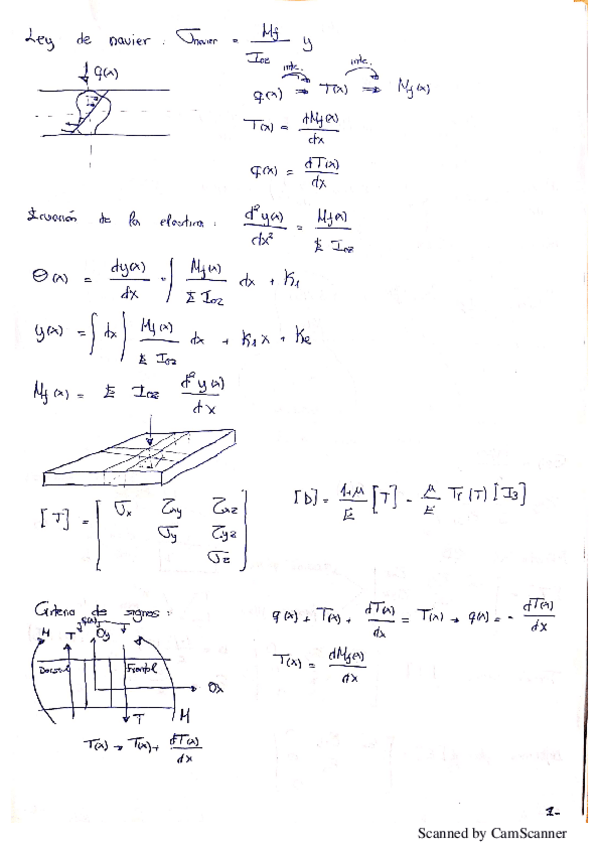 Ley de navier: σnavier = Mf / Ioz y
q(x)
intc. intc.
q(x) ⇒ T(x) ⇒ Mf(x)
T(x) = dMf(x) / dx
q(x) = dT(x) / dx
Ecuación de la elastica: d²y(x) / dx² = Mf(x) / E Ioz
Θ(x) = dy(x) / dx = ∫ Mf(x) / E Ioz dx + K1
y(x) = ∫ dx ∫ Mf(x) / E Ioz dx + K1 x + K2
Mf(x) = E Ioz d²y(x) / dx
[T] = [ σx τxy τxz
σy τyz
σz ]
[D] = 1+μ / E [T] - μ / E Tr(T) [I3]
Criterio de signos:
q(x)
M T Oy
Dorsal Frontal
Ox
T M
T(x) → T(x) + dT(x) / dx
q(x) + T(x) + dT(x) / dx = T(x) → q(x) = - dT(x) / dx
T(x) = dMf(x) / dx
1-
Scanned by CamScanner